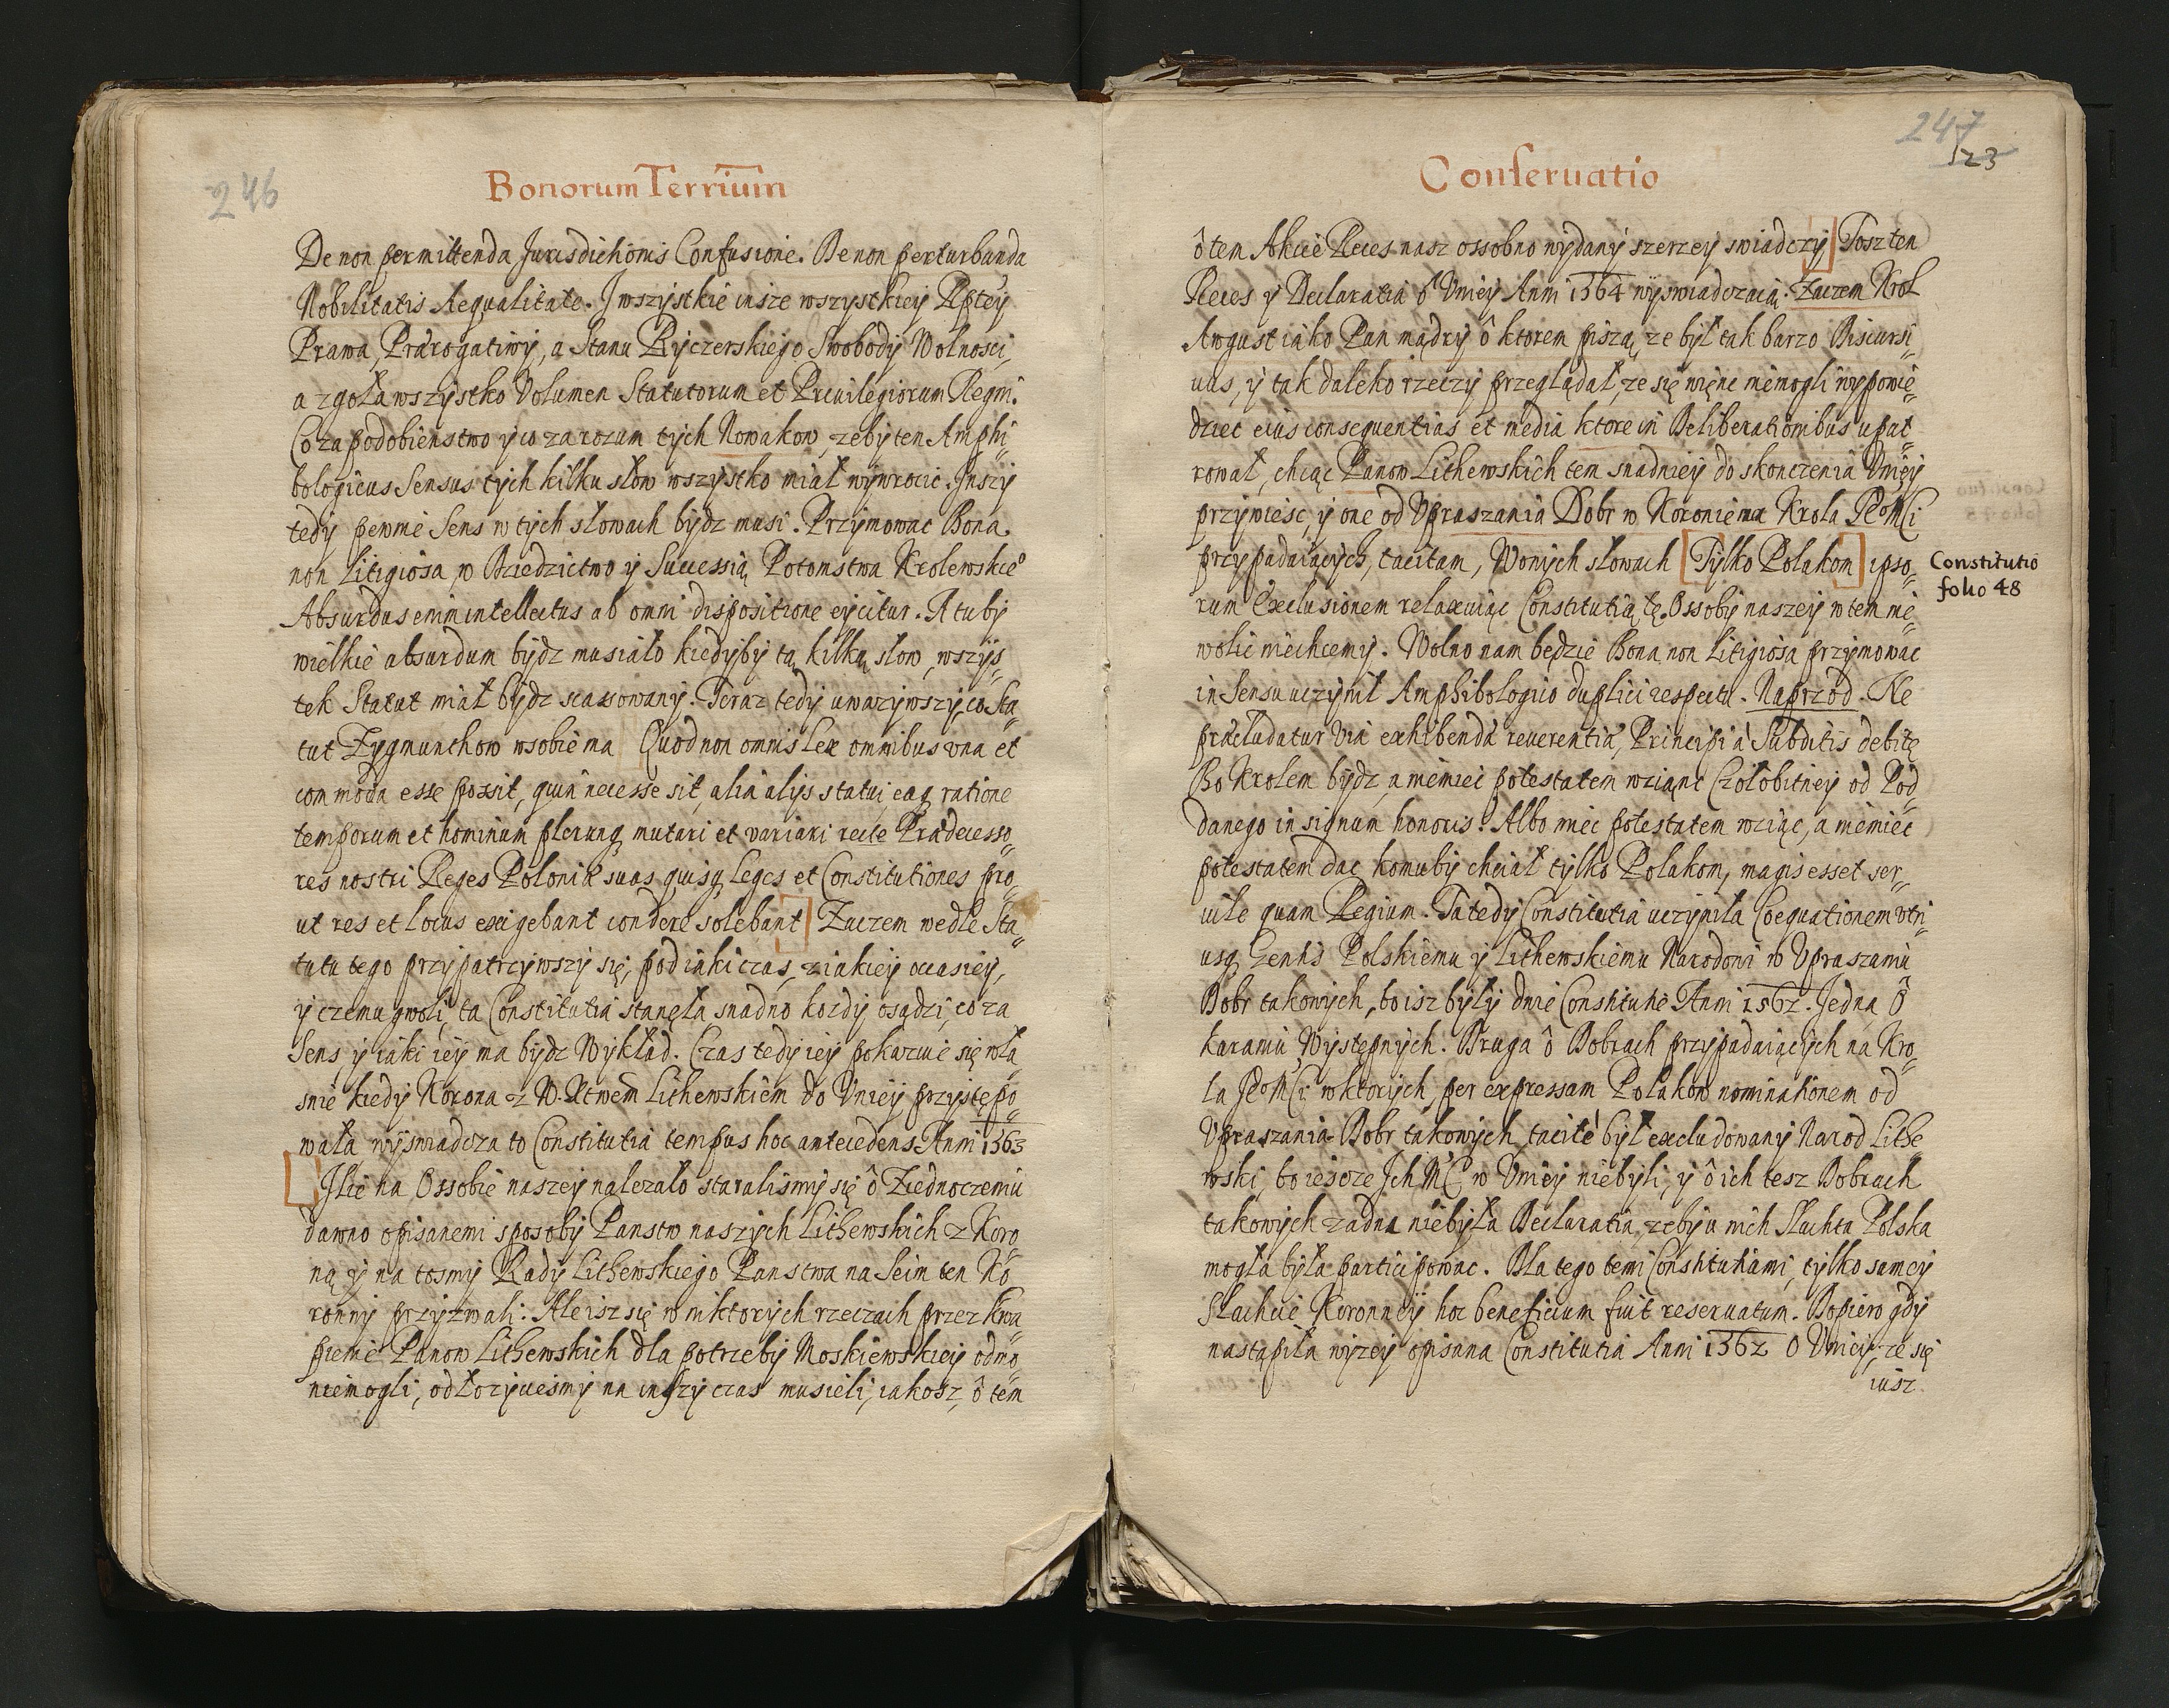 246
Bonorum Terrium
De non permittenda Jurisdichonis Confusione. De non perturbanda
Nobilitatis Aequalitate. J wszystkie insze wszystkiey Rptey
Prawa, Prærogatiwy, a Stanu Ryczerskiego Swobody Wolnosci,
a zgoła wszystko Volumen Statutorum et Priuilegiorum Regni.
Co za podobienstwo y co za rozum tych Nowakow, zeby ten Amphi¨
bologicus Sensus tych kilku słow wszystko miał wywrocic. Jnszy
tedy pewnie Sens w tych słowach bydz musi. Przymowac Bona
non Litigiosa, w Dziedzictwo y Successią Potomstwa Krolewskieo
Absurdus enim intellectus ab omni dispositione eycitur. A tu by
wielkie absurdum bydz musiało kiedyby tą kilką słow, wszys¨
tek Statut miał bydz scassowany. Teraz tedy uwazywszy, co Sta¨
tut Zygmunthow w sobie ma Quod non omnis Lex omnibus una et
commoda esse possit, quin necesse sit, alia alijs statui eaq ratione
temporum et hominum plerunq mutari et variari recte Prædecesso¨
res nostri Reges Poloniæ suas quisq Leges et Constitutiones pro¨
ut res et locus exigebant condere solebant] Zaczem wedle Sta¨
tutu tego przypatrzywszy się, pod iaki czas, z iakiey occasiey,
y czemu gwoli, ta Constitutia stanęła snadno kozdy osądzi, co za
Sens, y iaki iey ma bydz Wykład. Czas tedy iey pokazuie się wła¨
snie kiedy Korona z W. Xtwem Lithewskiem do Vniey przystępo¨
wała, wyswiadcza to Constitutia tempus hoc antecedens Anni 1563
[Jlie na Ossobie naszey nalezało staralismy się ô Ziednoczeniu
dawno opisanemi sposoby Panstw naszych Lithewskich z Koro¨
ną, y na tosmy Rady Lithewskiego Panstwa na Seim ten Ko¨
ronny przyzwali: Ale isz się w niktorych rzeczach przez kwa¨
pienie Panow Lithewskich dla potrzeby Moskiewskiey odno¨
niemogli, odłozycesmy na inszy czas musieli, iakosz, ô tem
247
123
Conseruatio
ô tem Akcie Reces nasz ossobno wydany szerzey swiadczy] Tosz ten
Reces y Declaratia ô Vniey Anni 1564 wyswiadczaią. Zaczem Krol
August iako Pan mądry ô ktorem piszą, ze był tak barzo Discursi¨
uus, y tak daleko rzeczy przeglądał, ze się więnc niemogli wypowie¨
dziec eius consequentias et media ktore in Deliberationibus upat¨
rował, chcąc Panow Lithewskich tem snadniey do skonczenia Vniey
przywiesc, y one od Vpraszania Dobr w Koronie na Krola JeoMCi
przypadaiących, tacitam, Wonych słowach [Tylko Polakom] ipso¨
rum exclusionem relaxuiąc Constitutią tę. Ossoby naszey w tem nie¨
wolic niechcemy. Wolno nam będzie Bona non Litigiosa przymowac
in Sensu uczynił Amphibologico duplici respectu. Naprzod. Ne
præcludatur via exhibendæ reuerentiæ, Principi a Subditis debitę
Bo Krolem bydz, a niemiec potestatem wziąnc Czołobitney od Pod¨
danego in signum honoris? Albo miec potestatem wziąc, a niemiec
potestatem dac komuby chciał tylko Polakom, magis esset ser¨
uile quam Regium. Ta tedy Constitutia uczyniła Coequationem vtri¨
usq Gentis Polskiemu y Lithewskiemu Narodowi w Vpraszaniu
Dobr takowych, bo isz były dwie Constitutie Anni 1562. Jedna ô
karaniu Występnych. Druga ô Dobrach przypadaiących na Kro¨
la JeoMCi w ktorych, per expressam Polakow nominationem od
Vpraszania Dobr takowych tacite był excludowany Narod Lithe
wski, bo iescze Jch MC w Vniey niebyli, y ô ich tesz Dobrach
takowych zadna niebyła Declaratia, zeby u nich Slachta Polska
mogła była participowac. Dla tego temi Constitutiami, tylko samey
Slachcie Koronney hoc beneficium fuit reseruatum. Dopiero gdy
nastąpiła wyzey opisana Constitutia Anni 1562 O Vniey, ze się
iusz.
Constitutio
folio 48